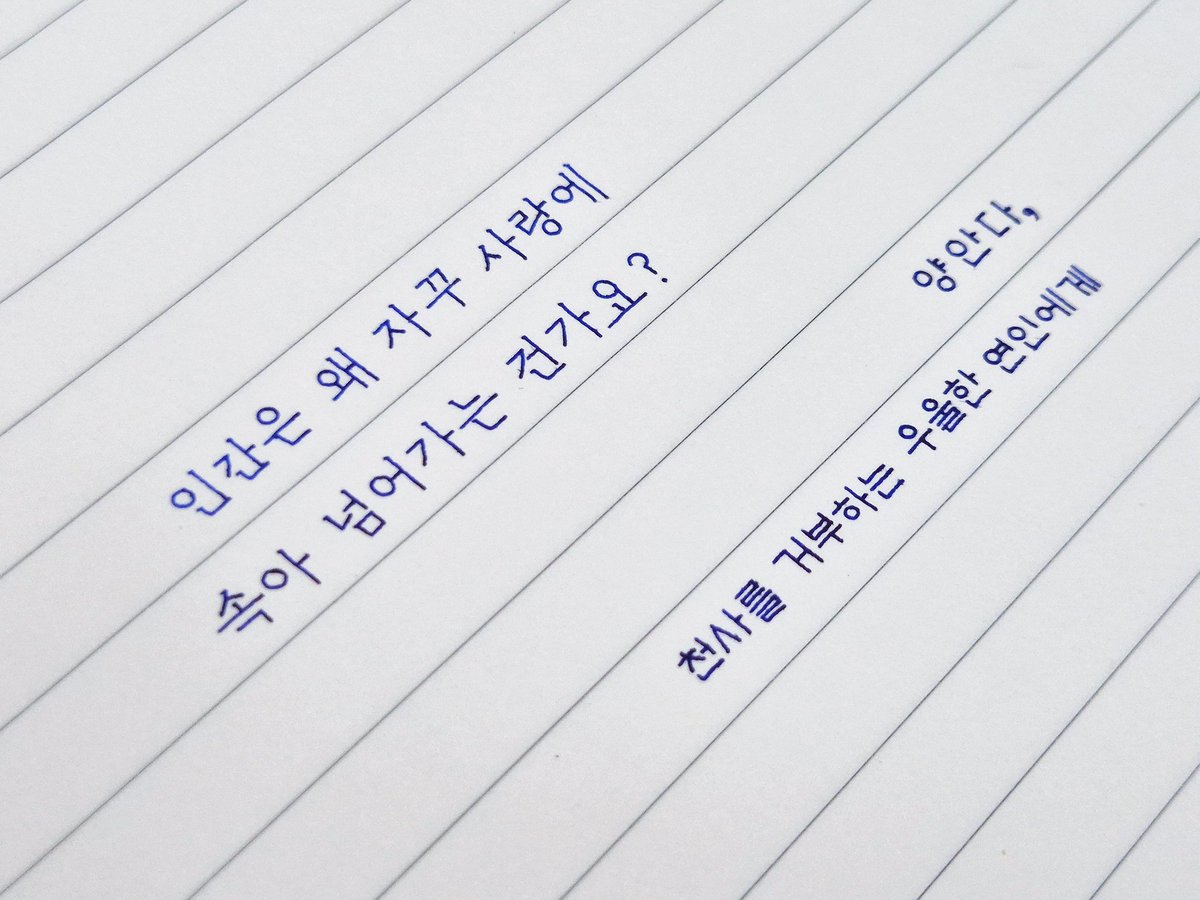 인간은 왜 자꾸 사랑에
속아 넘어가는 건가요?
양안다,
천사를 거부하는 우울한 연인에게